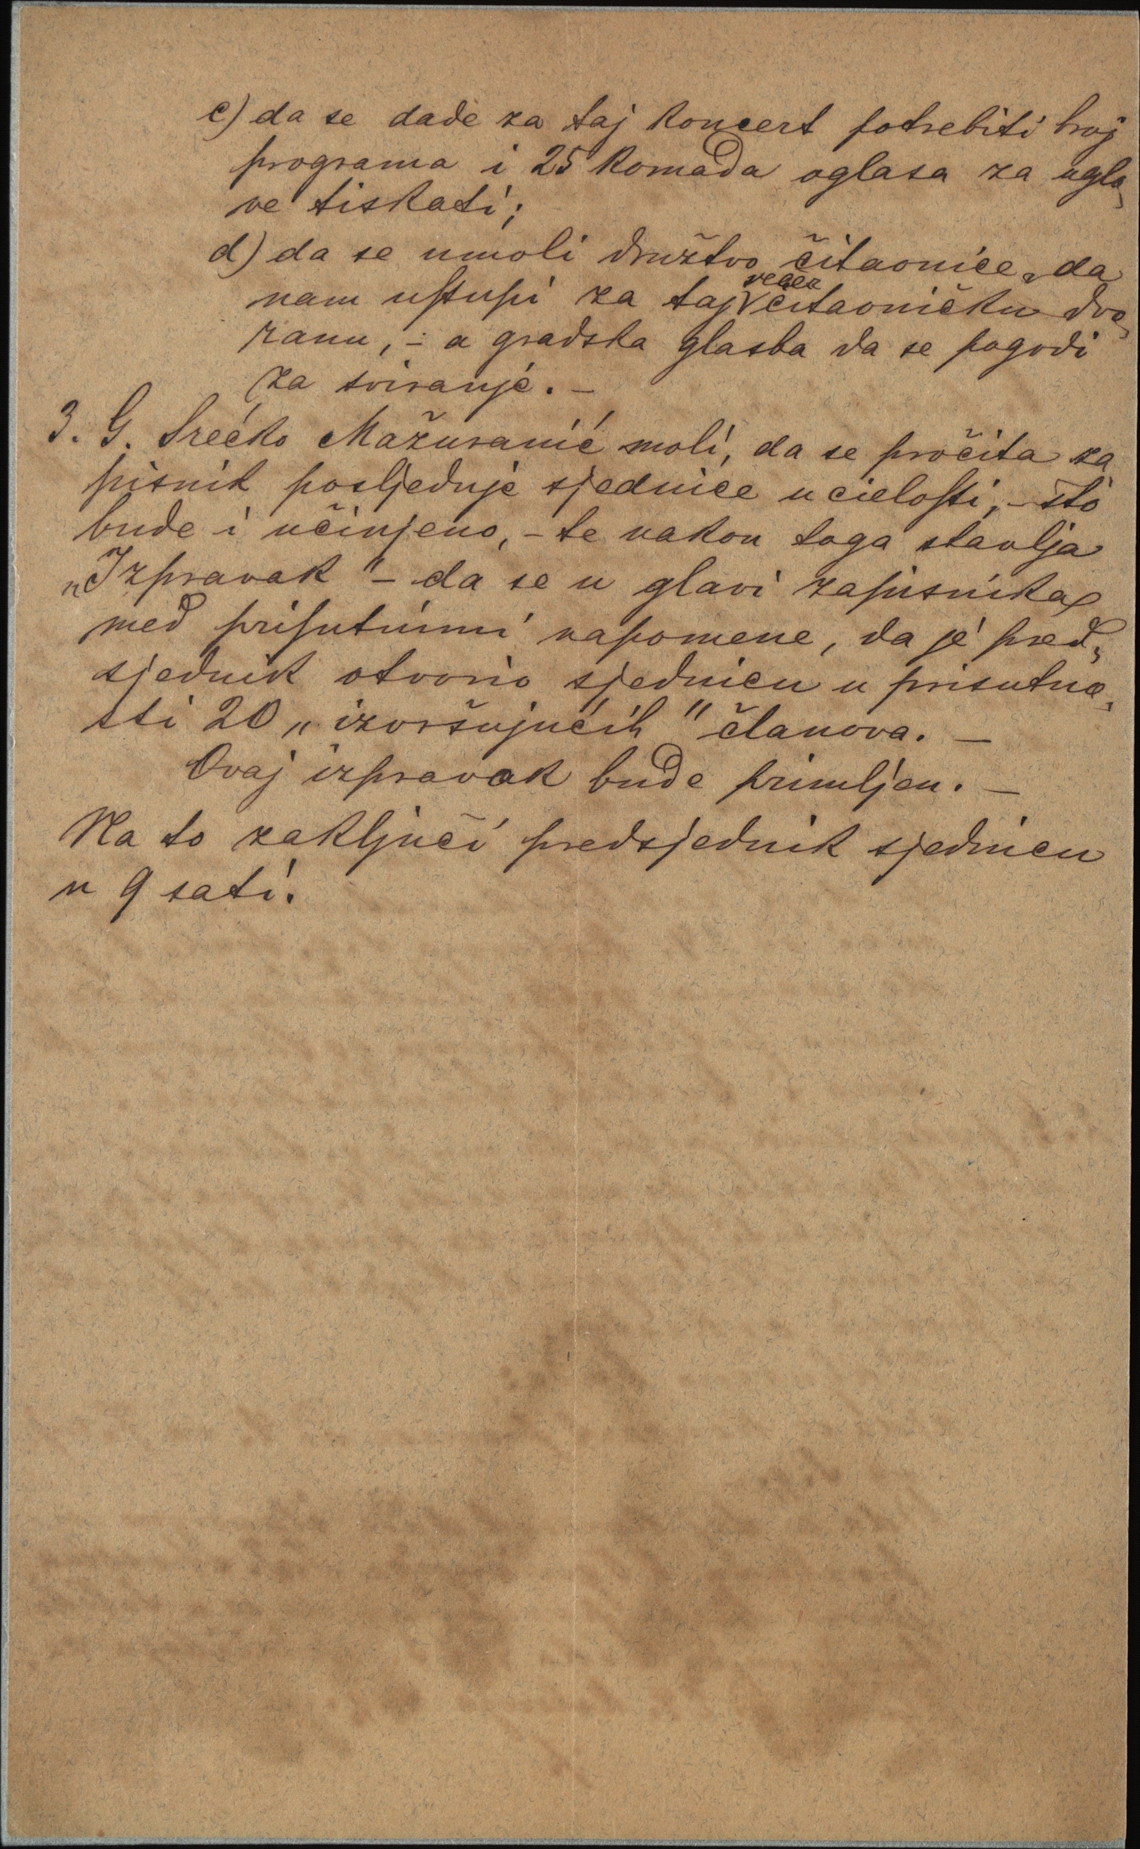 c) da se dade za taj koncert potrebiti broj
programa i 25 komada oglasa za uglo„
ve tiskati;
d) da se umoli družtvo čitaonice, da
nam ustupi za taj večer čitaoničku dvo„
ranu, – a gradska glasba da se pogodi
za sviranje. –
3. G. Srećko Mažuranić moli, da se pročita za
pisnik posljednje sjednice u cielosti, – što
bude i učinjeno, – te nakon toga stavlja
„Izpravak" – da se u glavi zapisnika
med prisutnimi napomene, da je pred„
sjednik otvorio sjednicu u prisutno„
sti 20 „izvršujućih" članova. –
Ovaj izpravak bude primljen. –
Na to zaključi predsjednik sjednicu
u 9 sati.